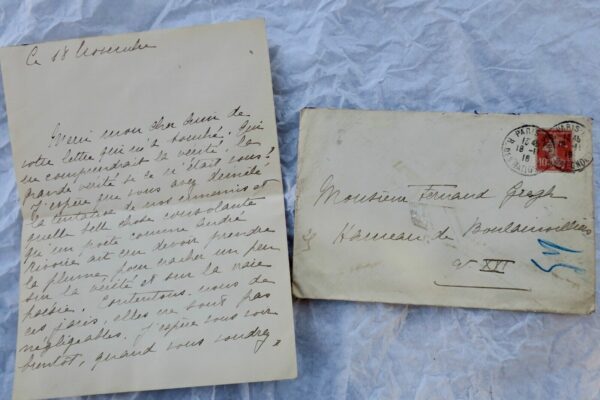 Ce 18 Novembre
Merci mon cher ami de
votre lettre qui m'a touché. Qui
me comprendrait la vérité, la
grande vérité si ce n'était vous?
J'espère que vous avez démêlé
la tentative de nos ennemis et
quelle belle chose consolante
qu'un poète comme André
Rivoire ait cru devoir prendre
la plume, pour cracher un peu
sur la vérité et sur la vraie
poésie. Contentons-nous de
ces joies, elles ne sont pas
négligeables. J'espère vous voir
bientôt, quand vous voudrez
Monsieur Fernand Gregh
Hameau de Boulainvilliers
XVI
PARIS
18
10